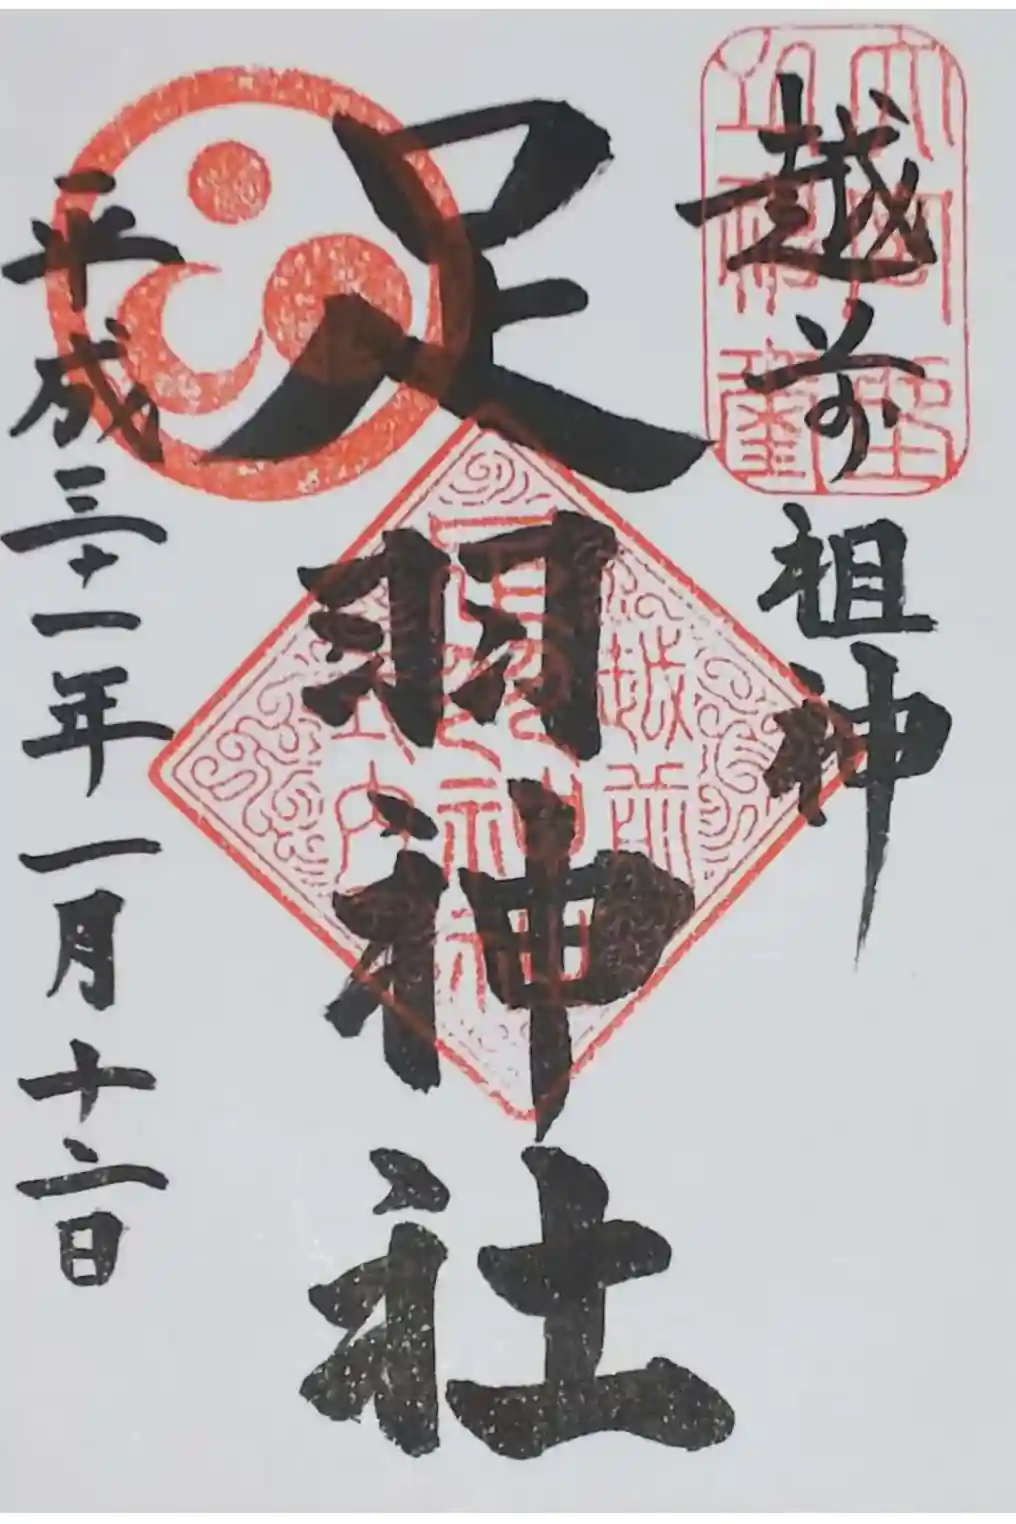 越前祖神
足羽神社
平成三十一年一月十二日
越前
足羽神社
式内